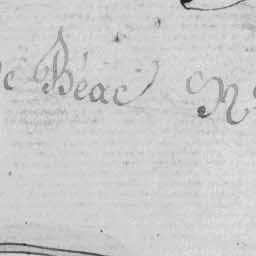 e Béac N